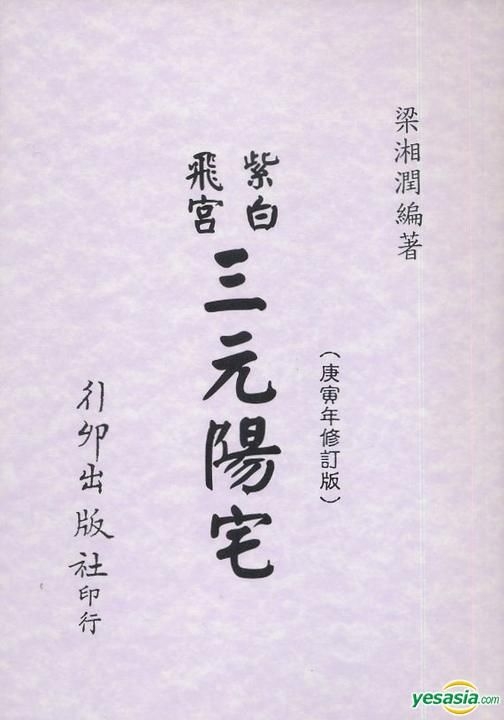 梁湘潤編著
紫白
飛宮
三元陽宅
(庚寅年修訂版)
行卯出版社印行
yesasia.com